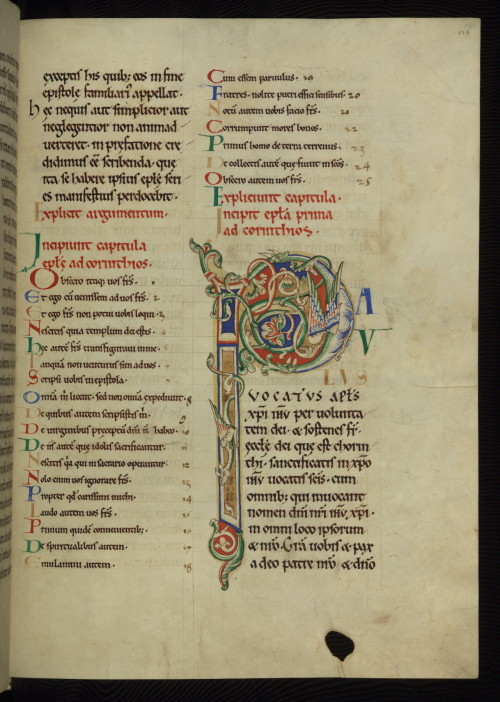 exceptis his quib; eos in fine
epistole familiari appellat.
he nequis aut simplicior aut
neglegentior non animad
verteret. in prefatione cre
didimus ee scribenda. que
ita se habere ipsius eple seri
es manifestius perdocebit.
Explicit argumentum.
Incipiunt capitula
eple ad corinthios.
Obsecro uos frs.
Et ego cu uenissem ad uos frs. 2
Et ego frs non potui uobis loqui. 3
Nescitis quia templum dei estis.
hec aute frs transfiguraui in me.
Tanquā non uenturus sim ad uos.
Scripsi uobis in epistola.
Omnia m licent. sed non omnia expediunt. 8
De quibus autem scripsistis m.
De uirginibus preceptū dni n habeo. 10
De iis aute que idolis sacrificantur.
Nescitis qa qui in sacrario operantur. 12
Nolo enim uos ignorare frs. 13
Propter qd carissimi michi. 14
Laudo autem uos frs.
Primum quide conuenientib; 16
De spiritualibus autem. 17
Emulamini autem. 18
Cum essem paruulus. 19
Fratres. nolite pueri effici sensibus. 20
Notū autem uobis facio frs. 21
Corrumpunt mores bonos. 22
Primus homo de terra terrenus. 23
De collectis autē que fiunt in scos. 24
Obsecro autem uos frs. 25
Expliciunt capitula.
Incipit epla prima
ad corinthios.
P A
V
LVS
VOCATVS apls
xpi ihu per uolunta
tem dei & sostenes fr.
ecclę dei que est chorin
thi. sanctificatis in xpo
ihu uocatis scis. cum
omnib; qui inuocant
nomen dni nri ihu xpi.
in omni loco ipsorum
& nro. Gra uobis & pax
a deo patre nro & dno